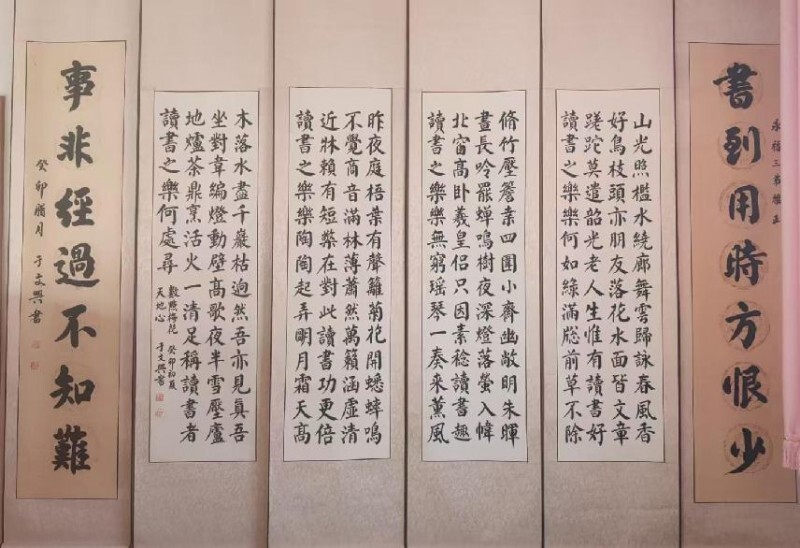 書到用時方恨少
永福三弟雅正
山光照檻水繞廊舞雲歸詠春風香
好鳥枝頭亦朋友落花水面皆文章
蹉跎莫遣韶光老人生惟有讀書好
讀書之樂樂何如綠滿牕前草不除
脩竹壓簷桒四圍小齋幽敞明朱暉
晝長吟罷蟬鳴樹夜深燈落螢入幃
北窗高卧羲皇侶只因素稔讀書趣
讀書之樂樂無窮瑶琴一奏来薰風
昨夜庭梧葉有聲籬菊花開蟋蟀鳴
不覺商音滿林薄蕭然萬籟涵虛清
近牀賴有短檠在對此讀書功更倍
讀書之樂樂陶陶起弄明月霜天高
木落水盡千巖枯迥然吾亦見真吾
坐對韋編燈動壁高歌夜半雪壓廬
地爐茶鼎烹活火一清足稱讀書者
讀書之樂何處尋
數點梅花 癸卯初夏
天地心 于文興書
事非經過不知難
癸卯腊月 于文興書